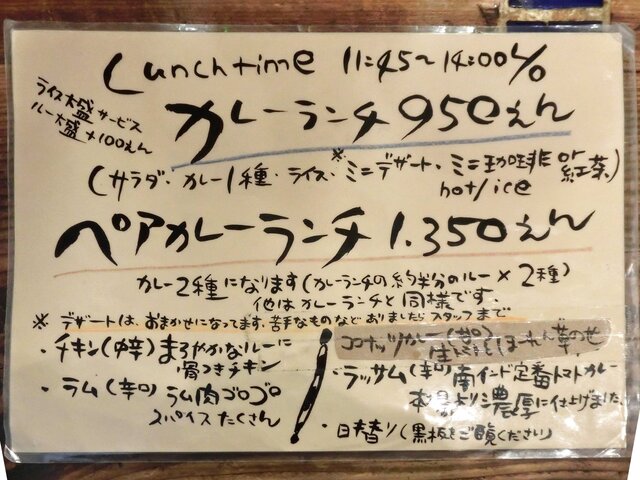 Lunch time 11:45〜14:00%
ライス大盛サービス
ルー大盛+100えん
カレーランチ950えん
(サラダ・カレー1種・ライス・※ミニデザート・ミニ珈琲or紅茶)
hot/ice
ペアカレーランチ1.350えん
カレー2種になります(カレーランチの約半分のルー×2種)
他はカレーランチと同様です.
※デザートは、おまかせになってます.苦手なものなどありましたらスタッフまで
・チキン(中辛)まろやかなルーに
骨つきチキン
・ラム(辛口)ラム肉ゴロゴロ
スパイスたくさん
ココナッツカレー(甘口)
ほうれん草のせ
・ラッサム(辛口)南インド定番トマトカレー
本場より濃厚に仕上げました
・日替り(黒板をご覧ください)